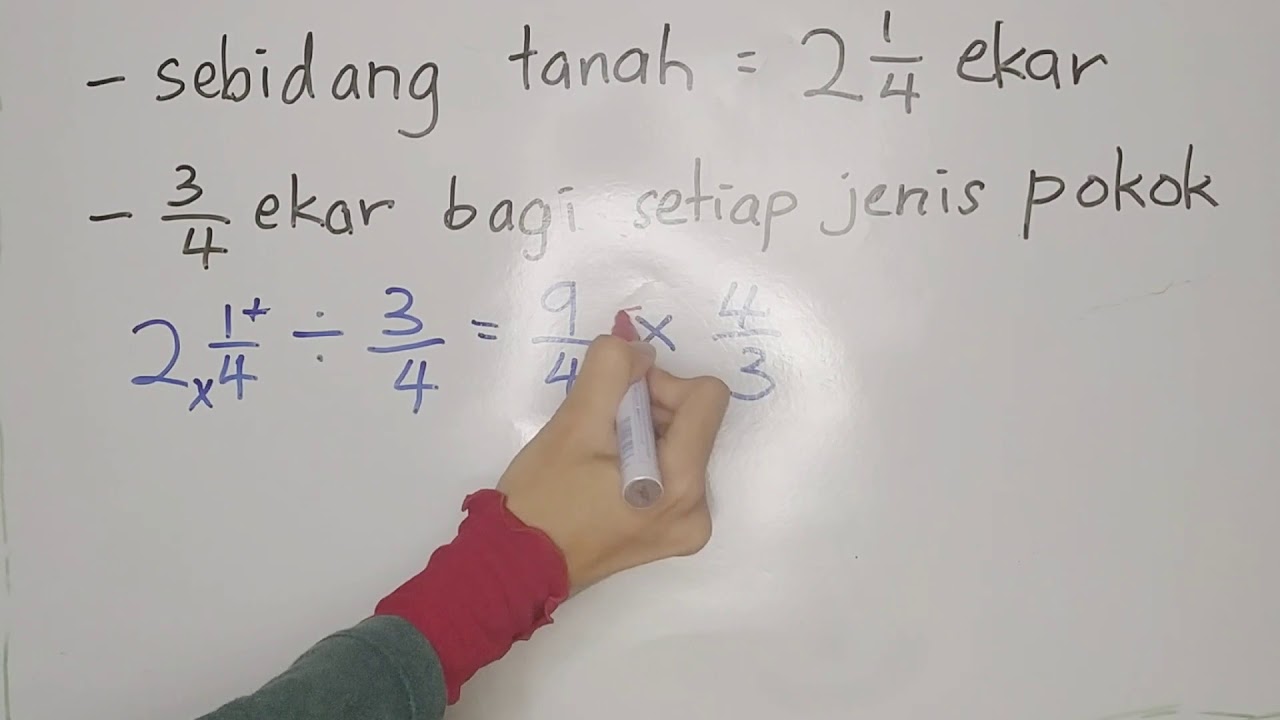 - sebidang tanah = 2 1/4 ekar
- 3/4 ekar bagi setiap jenis pokok
2 x 1+/4 ÷ 3/4 = 9/4 x 4/3